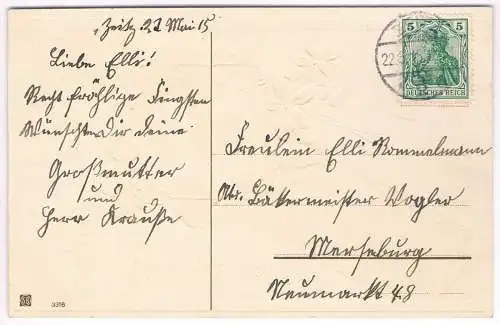 Zeitz 22 Mai 15
Liebe Elli!
Recht fröhliche Pfingsten
Wünscht Dir deine
Großmutter
und
Herr Krauße
5 5
DEUTSCHES REICH
22.5
Fräulein Elli Rommelsmann
Bäkermeister Vogler
Merseburg
Neumarkt 48
3318